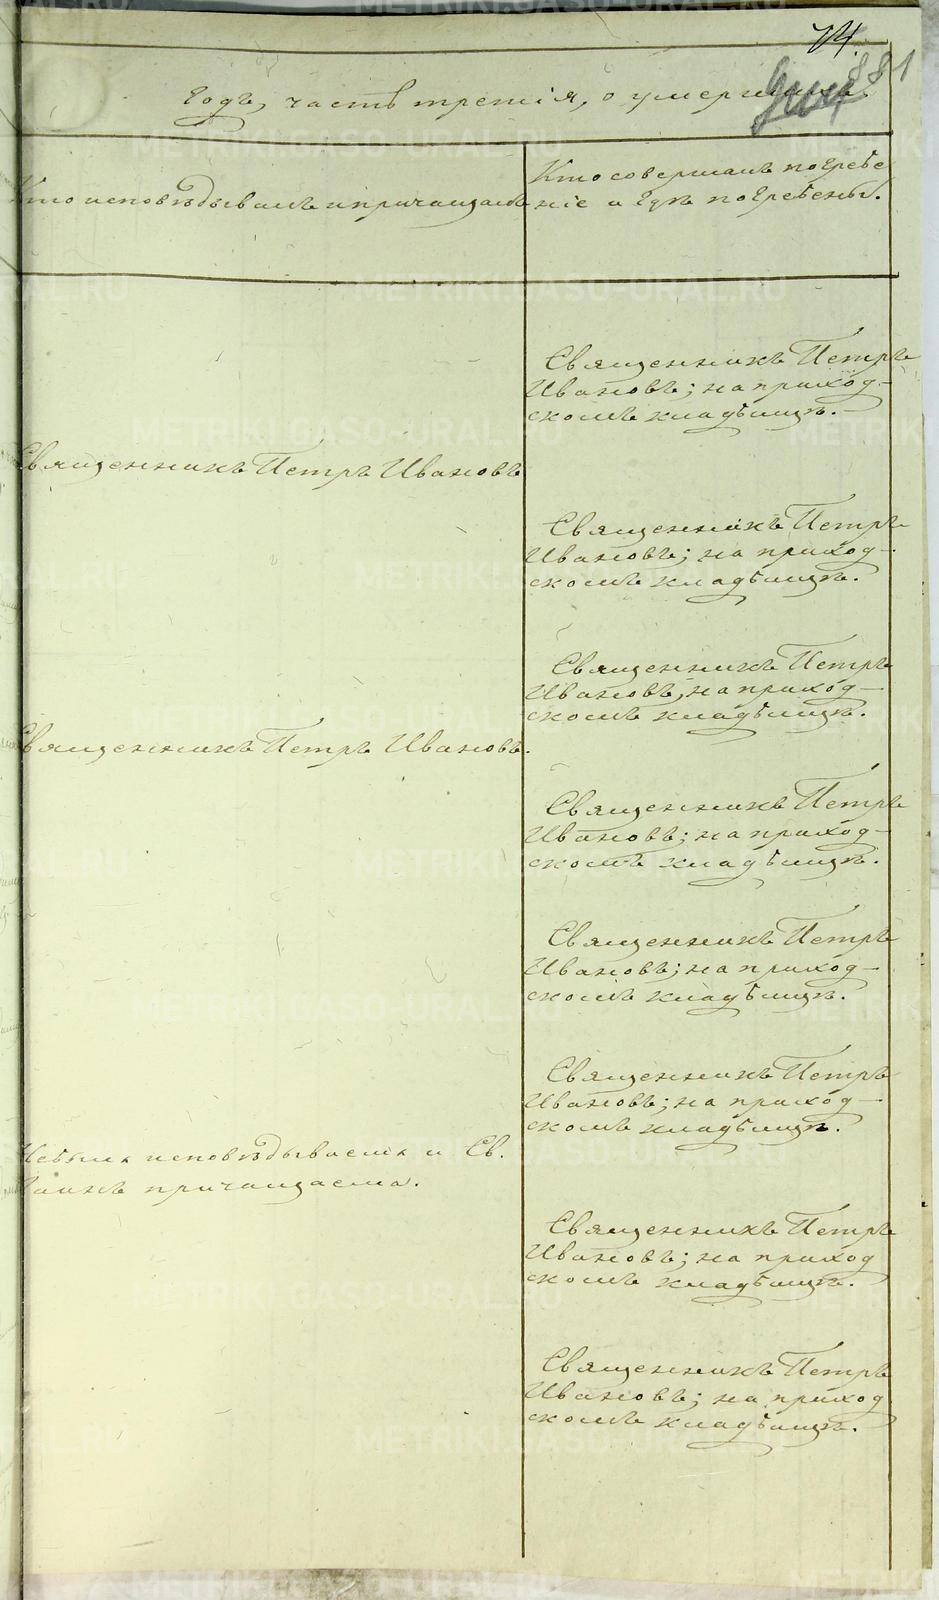 74.
881
Годъ, часть третія, о умершихъ.
Кто исповѣдывалъ и причащалъ
Кто совершалъ погребе
ніе и гдѣ погребены.
Священникъ Петръ
Ивановъ; на приход-
скомъ кладбищѣ.
Священникъ Петръ Ивановъ
Священникъ Петръ
Ивановъ; на приход-
скомъ кладбищѣ.
Священникъ Петръ
Ивановъ; на приход-
скомъ кладбищѣ.
Священникъ Петръ Ивановъ.
Священникъ Петръ
Ивановъ; на приход-
скомъ кладбищѣ.
Священникъ Петръ
Ивановъ; на приход-
скомъ кладбищѣ.
Священникъ Петръ
Ивановъ; на приход-
скомъ кладбищѣ.
Не была исповѣдываема и Св.
Таинъ причащаема.
Священникъ Петръ
Ивановъ; на приход
скомъ кладбищѣ.
Священникъ Петръ
Ивановъ; на приход
скомъ кладбищѣ.
METRIKI.GASO-URAL.RU